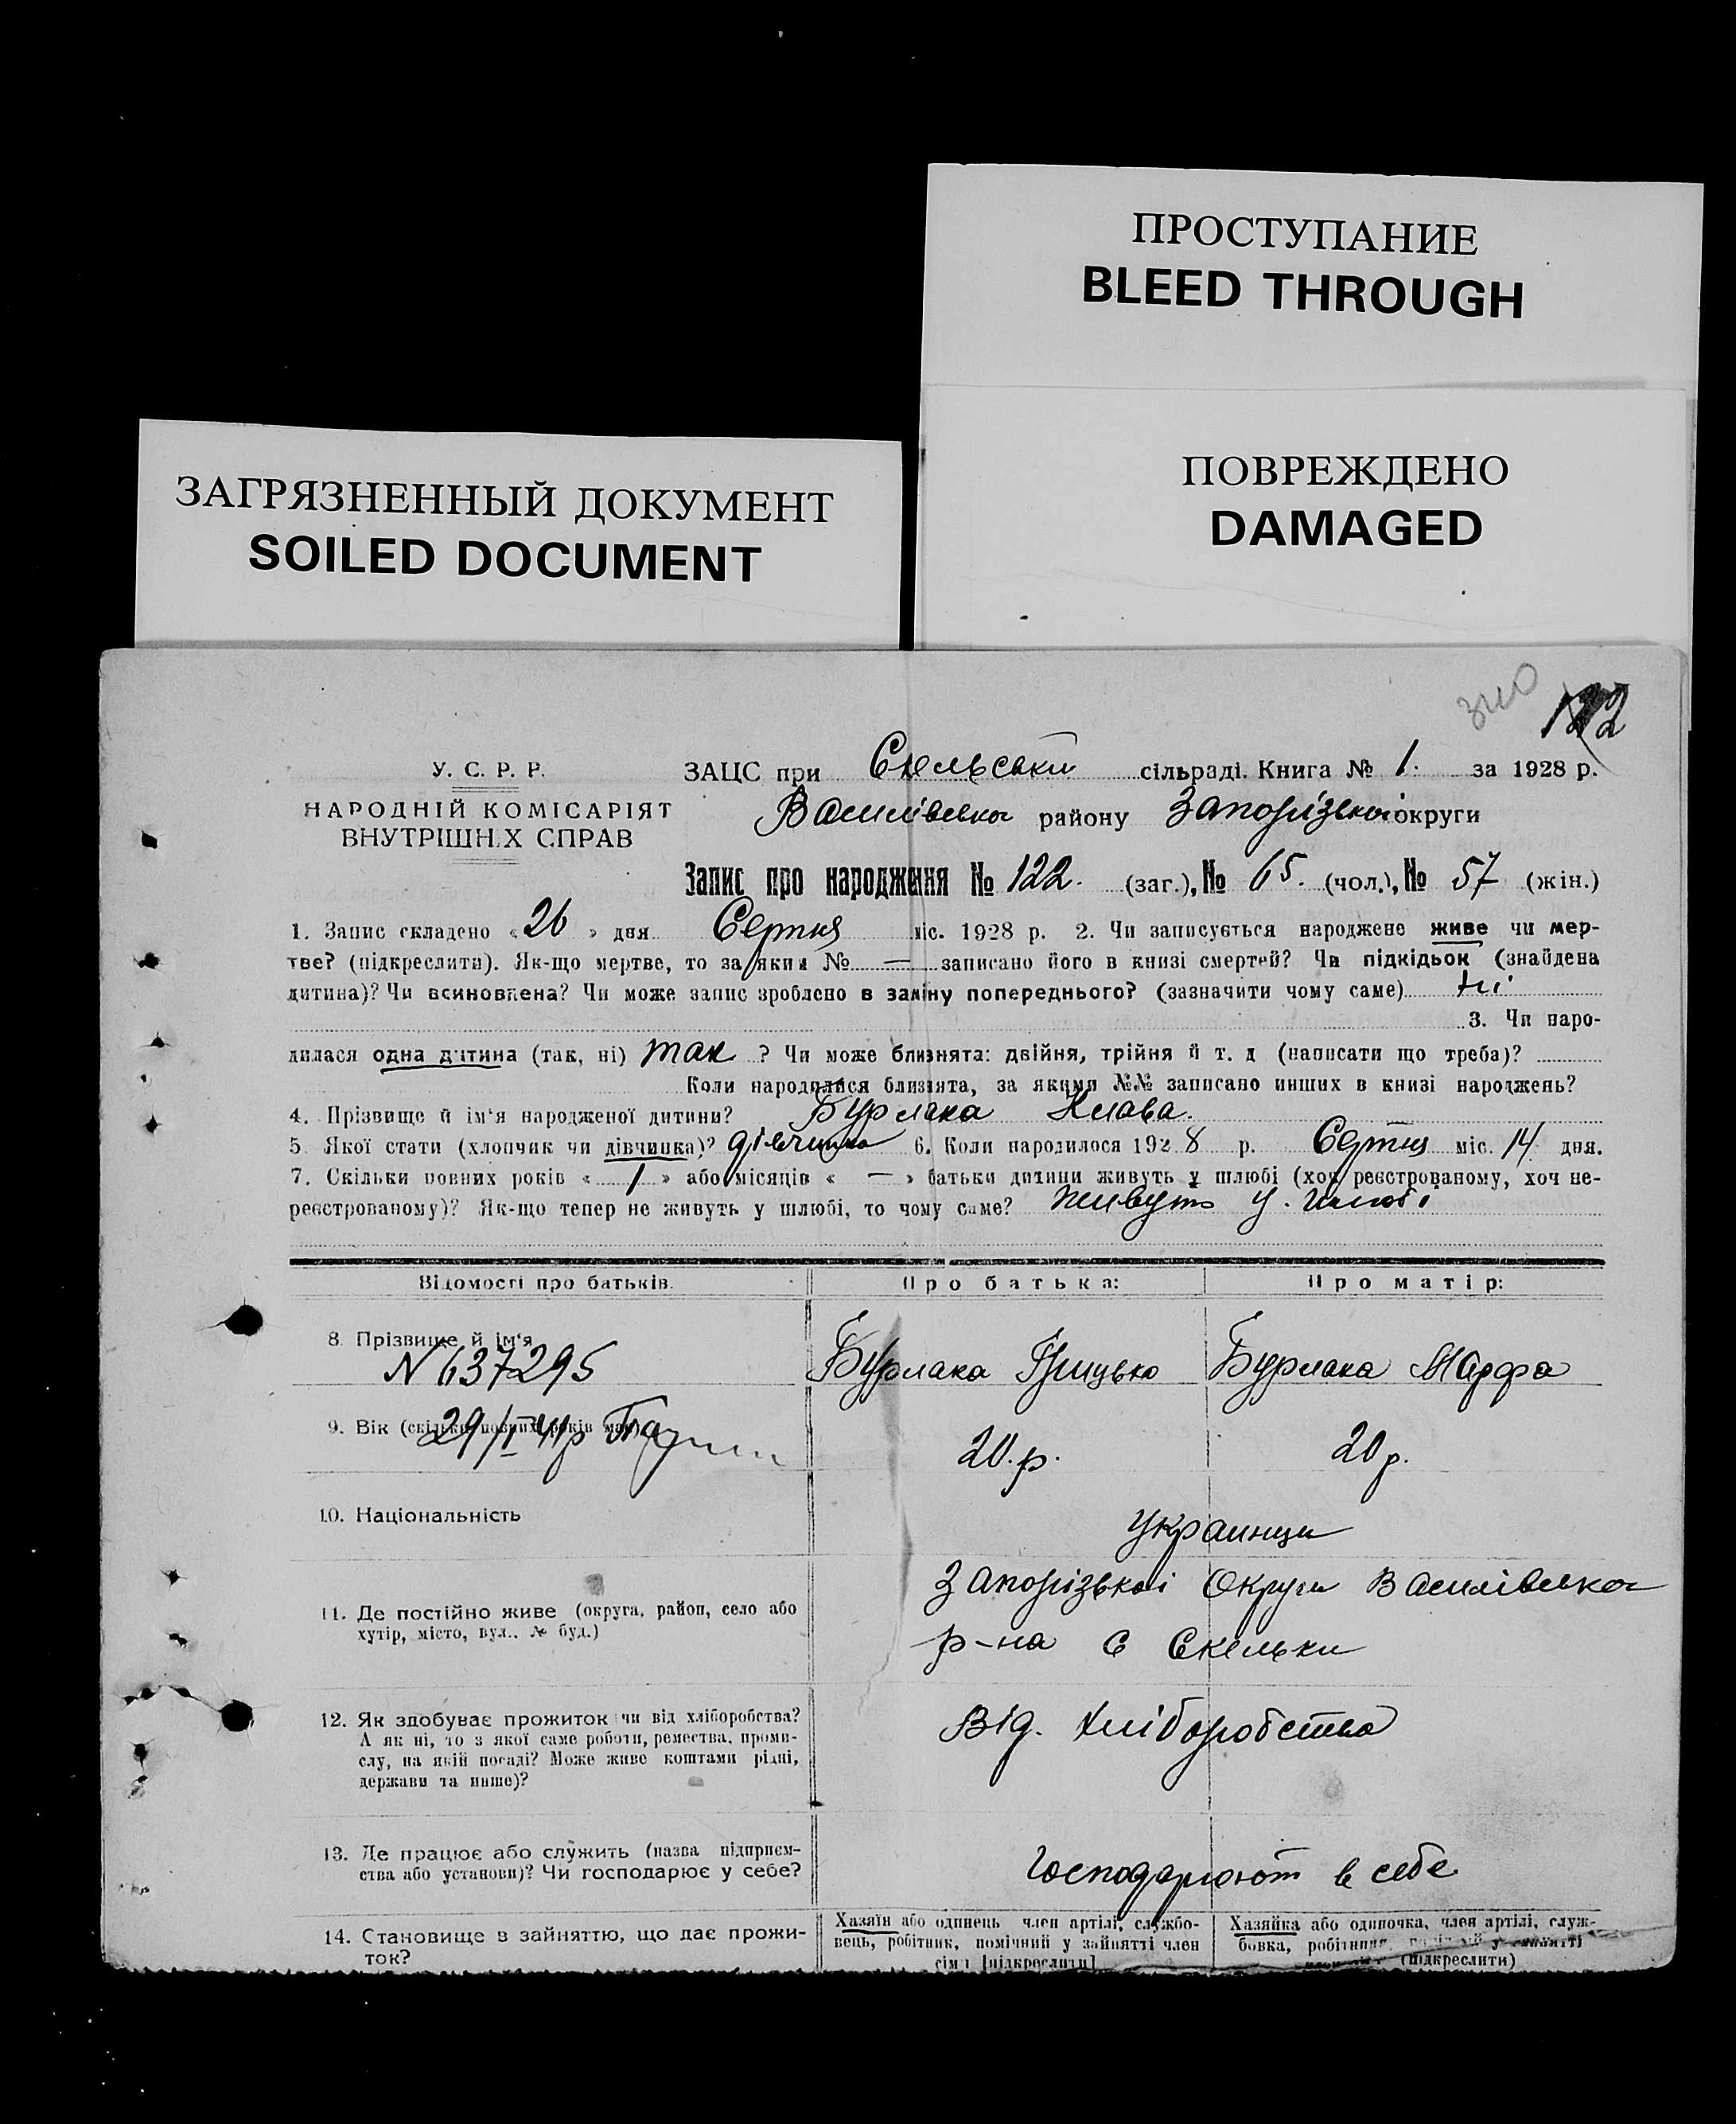 ПРОСТУПАНИЕ
BLEED THROUGH
ПОВРЕЖДЕНО
DAMAGED
ЗАГРЯЗНЕННЫЙ ДОКУМЕНТ
SOILED DOCUMENT
122
У. С. Р. Р.
НАРОДНІЙ КОМІСАРІЯТ
ВНУТРІШНІХ СПРАВ
ЗАЦС при Скельськи сільраді. Книга № 1. за 1928 р.
Василівська району Запорізькоі округи
Запис про народження № 122. (заг.), № 65. (чол.), № 57 (жін.)
1. Запис складено «26» дня Серпня міс. 1928 р. 2. Чи записується народжене живе чи мер-
тве? (підкреслити). Як-що мертве, то за яким № — записано його в книзі смертей? Чи підкідьок (знайдена
дитина)? Чи всиновлена? Чи може запис зроблено в заміну попереднього? (зазначити чому саме) ні
3. Чи наро-
дилася одна дитина (так, ні) так ? Чи може близнята: двійня, трійня й т. д (написати що треба)?
Коли народилися близнята, за якими №№ записано инших в книзі народжень?
4. Прізвище й ім'я народженої дитини? Бурлака Клава.
5. Якої стати (хлопчик чи дівчинка)? дівчинка 6. Коли народилося 1928 р. Серпня міс. 14 дня.
7. Скільки повних років «1» або місяців «—» батьки дитини живуть у шлюбі (хоч реєстрованому, хоч не-
реєстрованому)? Як-що тепер не живуть у шлюбі, то чому саме? Живуть у. шлюбі
Відомості про батьків. Про батька: Про матір:
8. Прізвище й ім'я Бурлака Грицько Бурлака Марфа
N 637295
9. Вік (скільки повних років має) 20.р. 20р.
29/I 41р
10. Національність Украинци
11. Де постійно живе (округа, район, село або
хутір, місто, вул.. № буд.)
Запорізькоі Округи Василівська
р-на с Скельки
12. Як здобуває прожиток чи від хліборобства?
А як ні, то з якої саме роботи, ремества, проми-
слу, на якій посаді? Може живе коштами рідні,
держави та инше)?
Від. хліборобства
13. Де працює або служить (назва підприєм-
ства або установи)? Чи господарює у себе?
Господарюют в себе
14. Становище в зайняттю, що дає прожи-
ток?
Хазяїн або одинець член артілі, службо-
вець, робітник, помічний у зайнятті член
сім'ї [підкреслити]
Хазяйка або одиночка, член артілі, служ-
бовка, робітниця
(підкреслити)